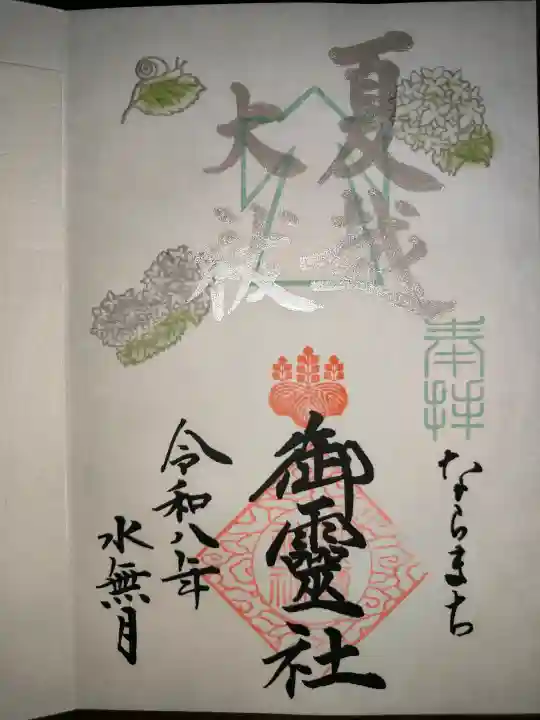 夏越
大祓
奉拝
ならまち
御靈社
令和八年
水無月